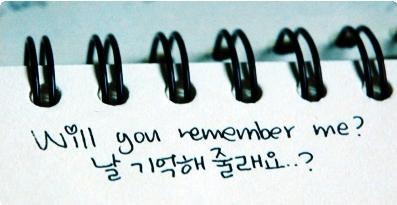 Will you remember me?
날 기억해 줄래요..?